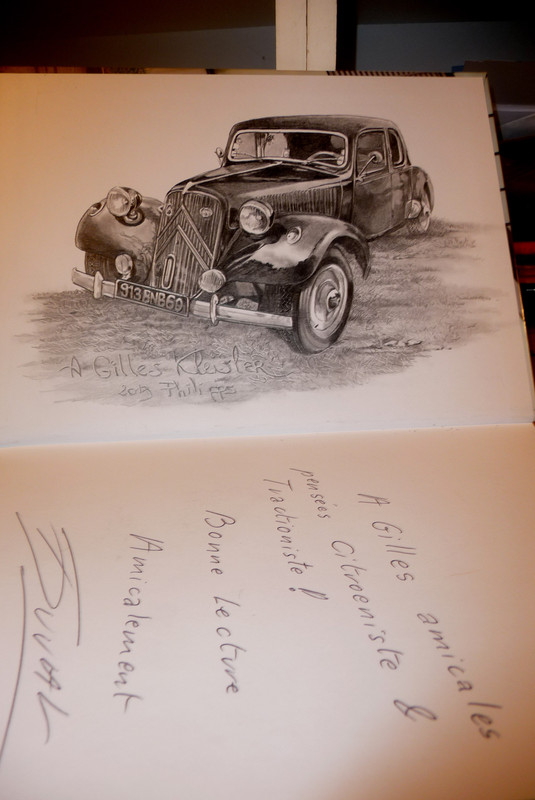 913BNB69
A Gilles
2013 Philippe
A Gilles amicales
pensées Citroeniste &
Tractioniste !
Bonne Lecture
Amicalement